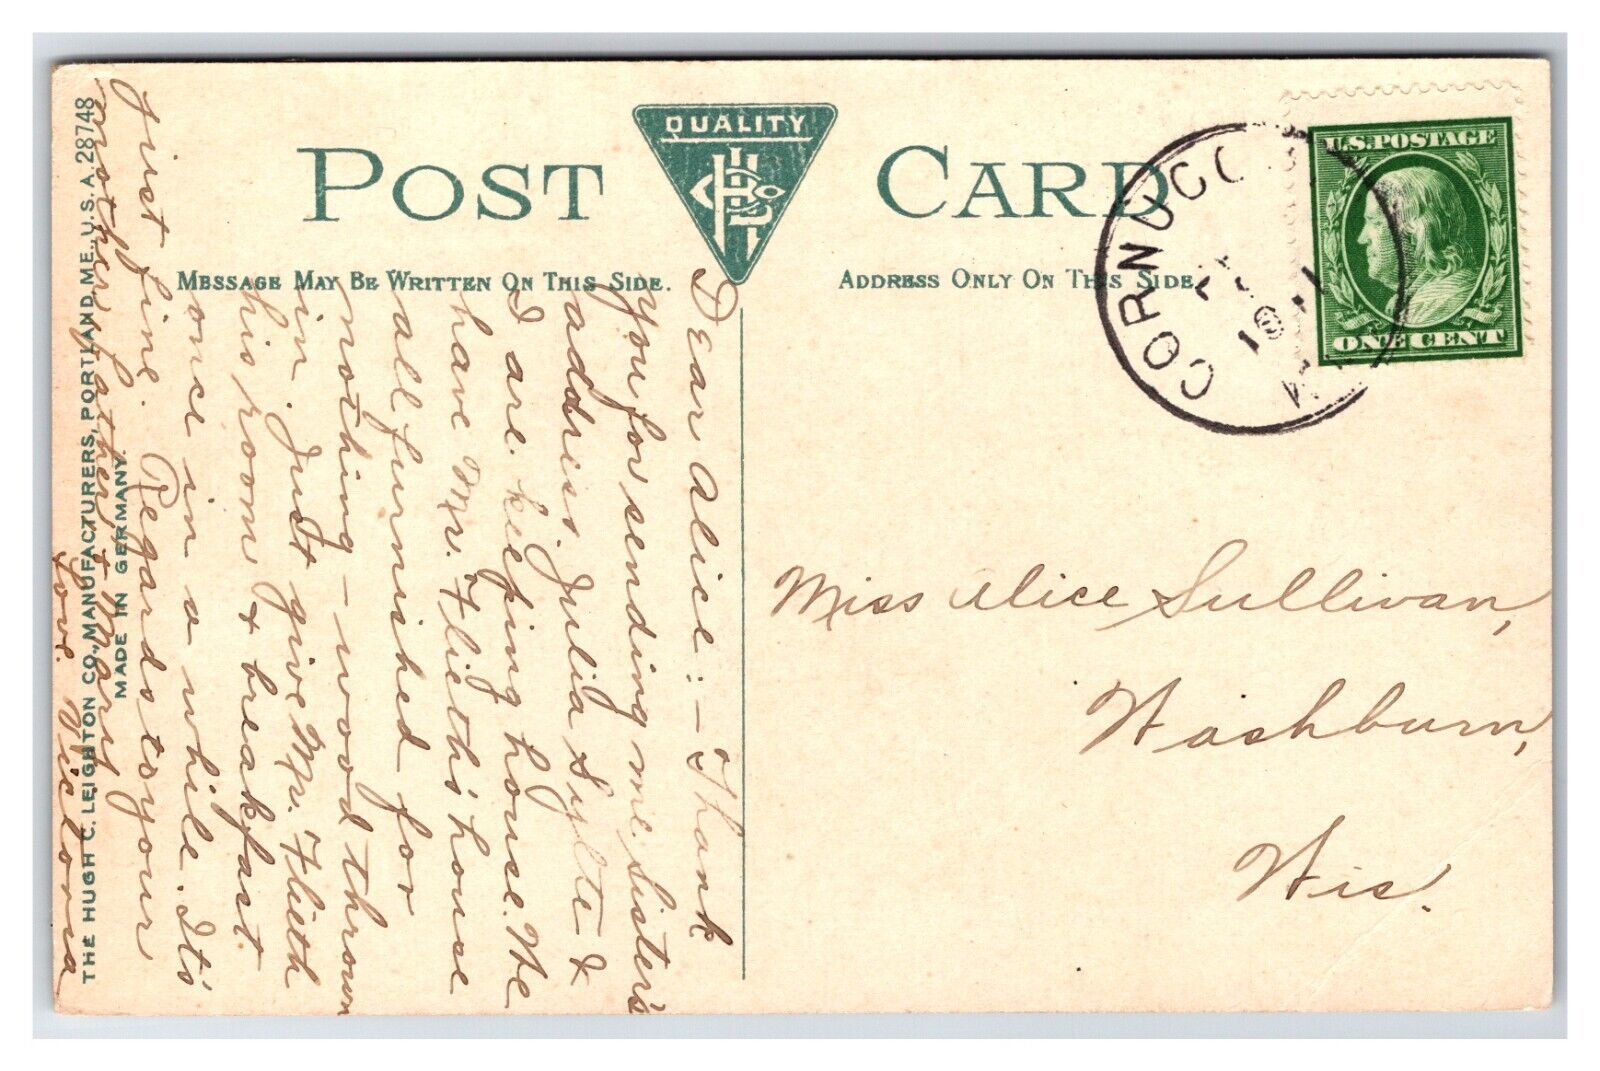 POST CARD
QUALITY
MESSAGE MAY BE WRITTEN ON THIS SIDE.
ADDRESS ONLY ON THIS SIDE.
U.S. POSTAGE
ONE CENT
CORNUCO
Dear Alice:- Thank
you for sending me Sister's
address. Julia Sylte &
I are keeping house. We
have Mr. Flieth's house
all furnished for
nothing - wood thrown
in. Just give Mr. Flieth
his room & breakfast
once in a while. It's
just fine. Regards to your
mother, father & Mary
Love. Victoria
Miss Alice Sullivan,
Washburn,
Wis.
THE HUGH C. LEIGHTON CO., MANUFACTURERS, PORTLAND, ME., U.S.A. 28748
MADE IN GERMANY.